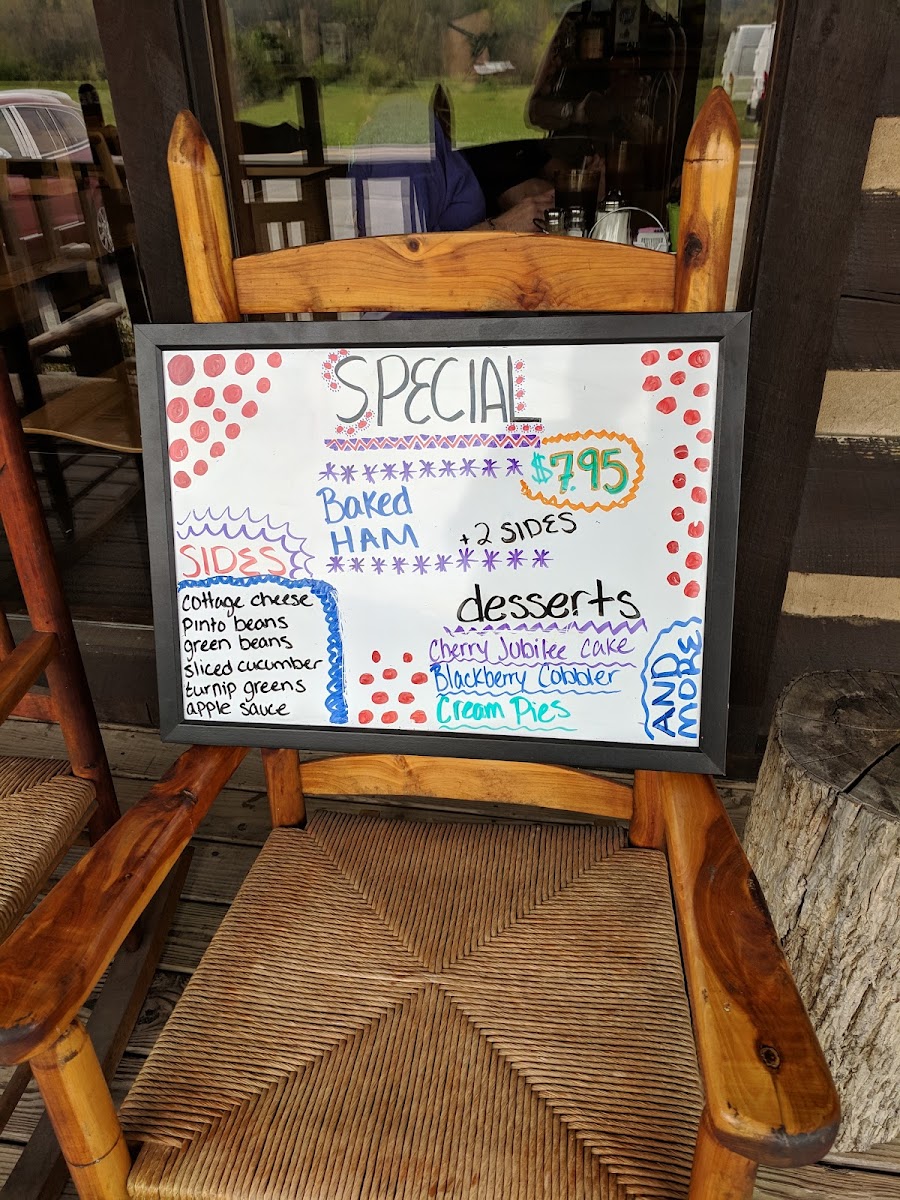 SPECIAL
$7.95
Baked
HAM +2 SIDES
SIDES
cottage cheese
pinto beans
green beans
sliced cucumber
turnip greens
apple sauce
desserts
Cherry Jubilee Cake
Blackberry Cobbler
Cream Pies
AND
MORE